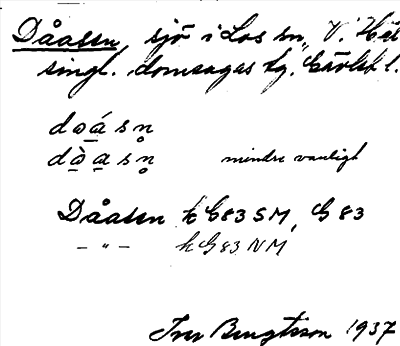 Dåasen, sjö i Los sn, V. Häl
singl. domsagas tg. Gävleb. l.
doá s n̥
dò̱ a̱ s n̥ mindre vanligt
Dåasen k G83 SM, G 83
– " – k G83 NM
Iver Bengtsson 1937